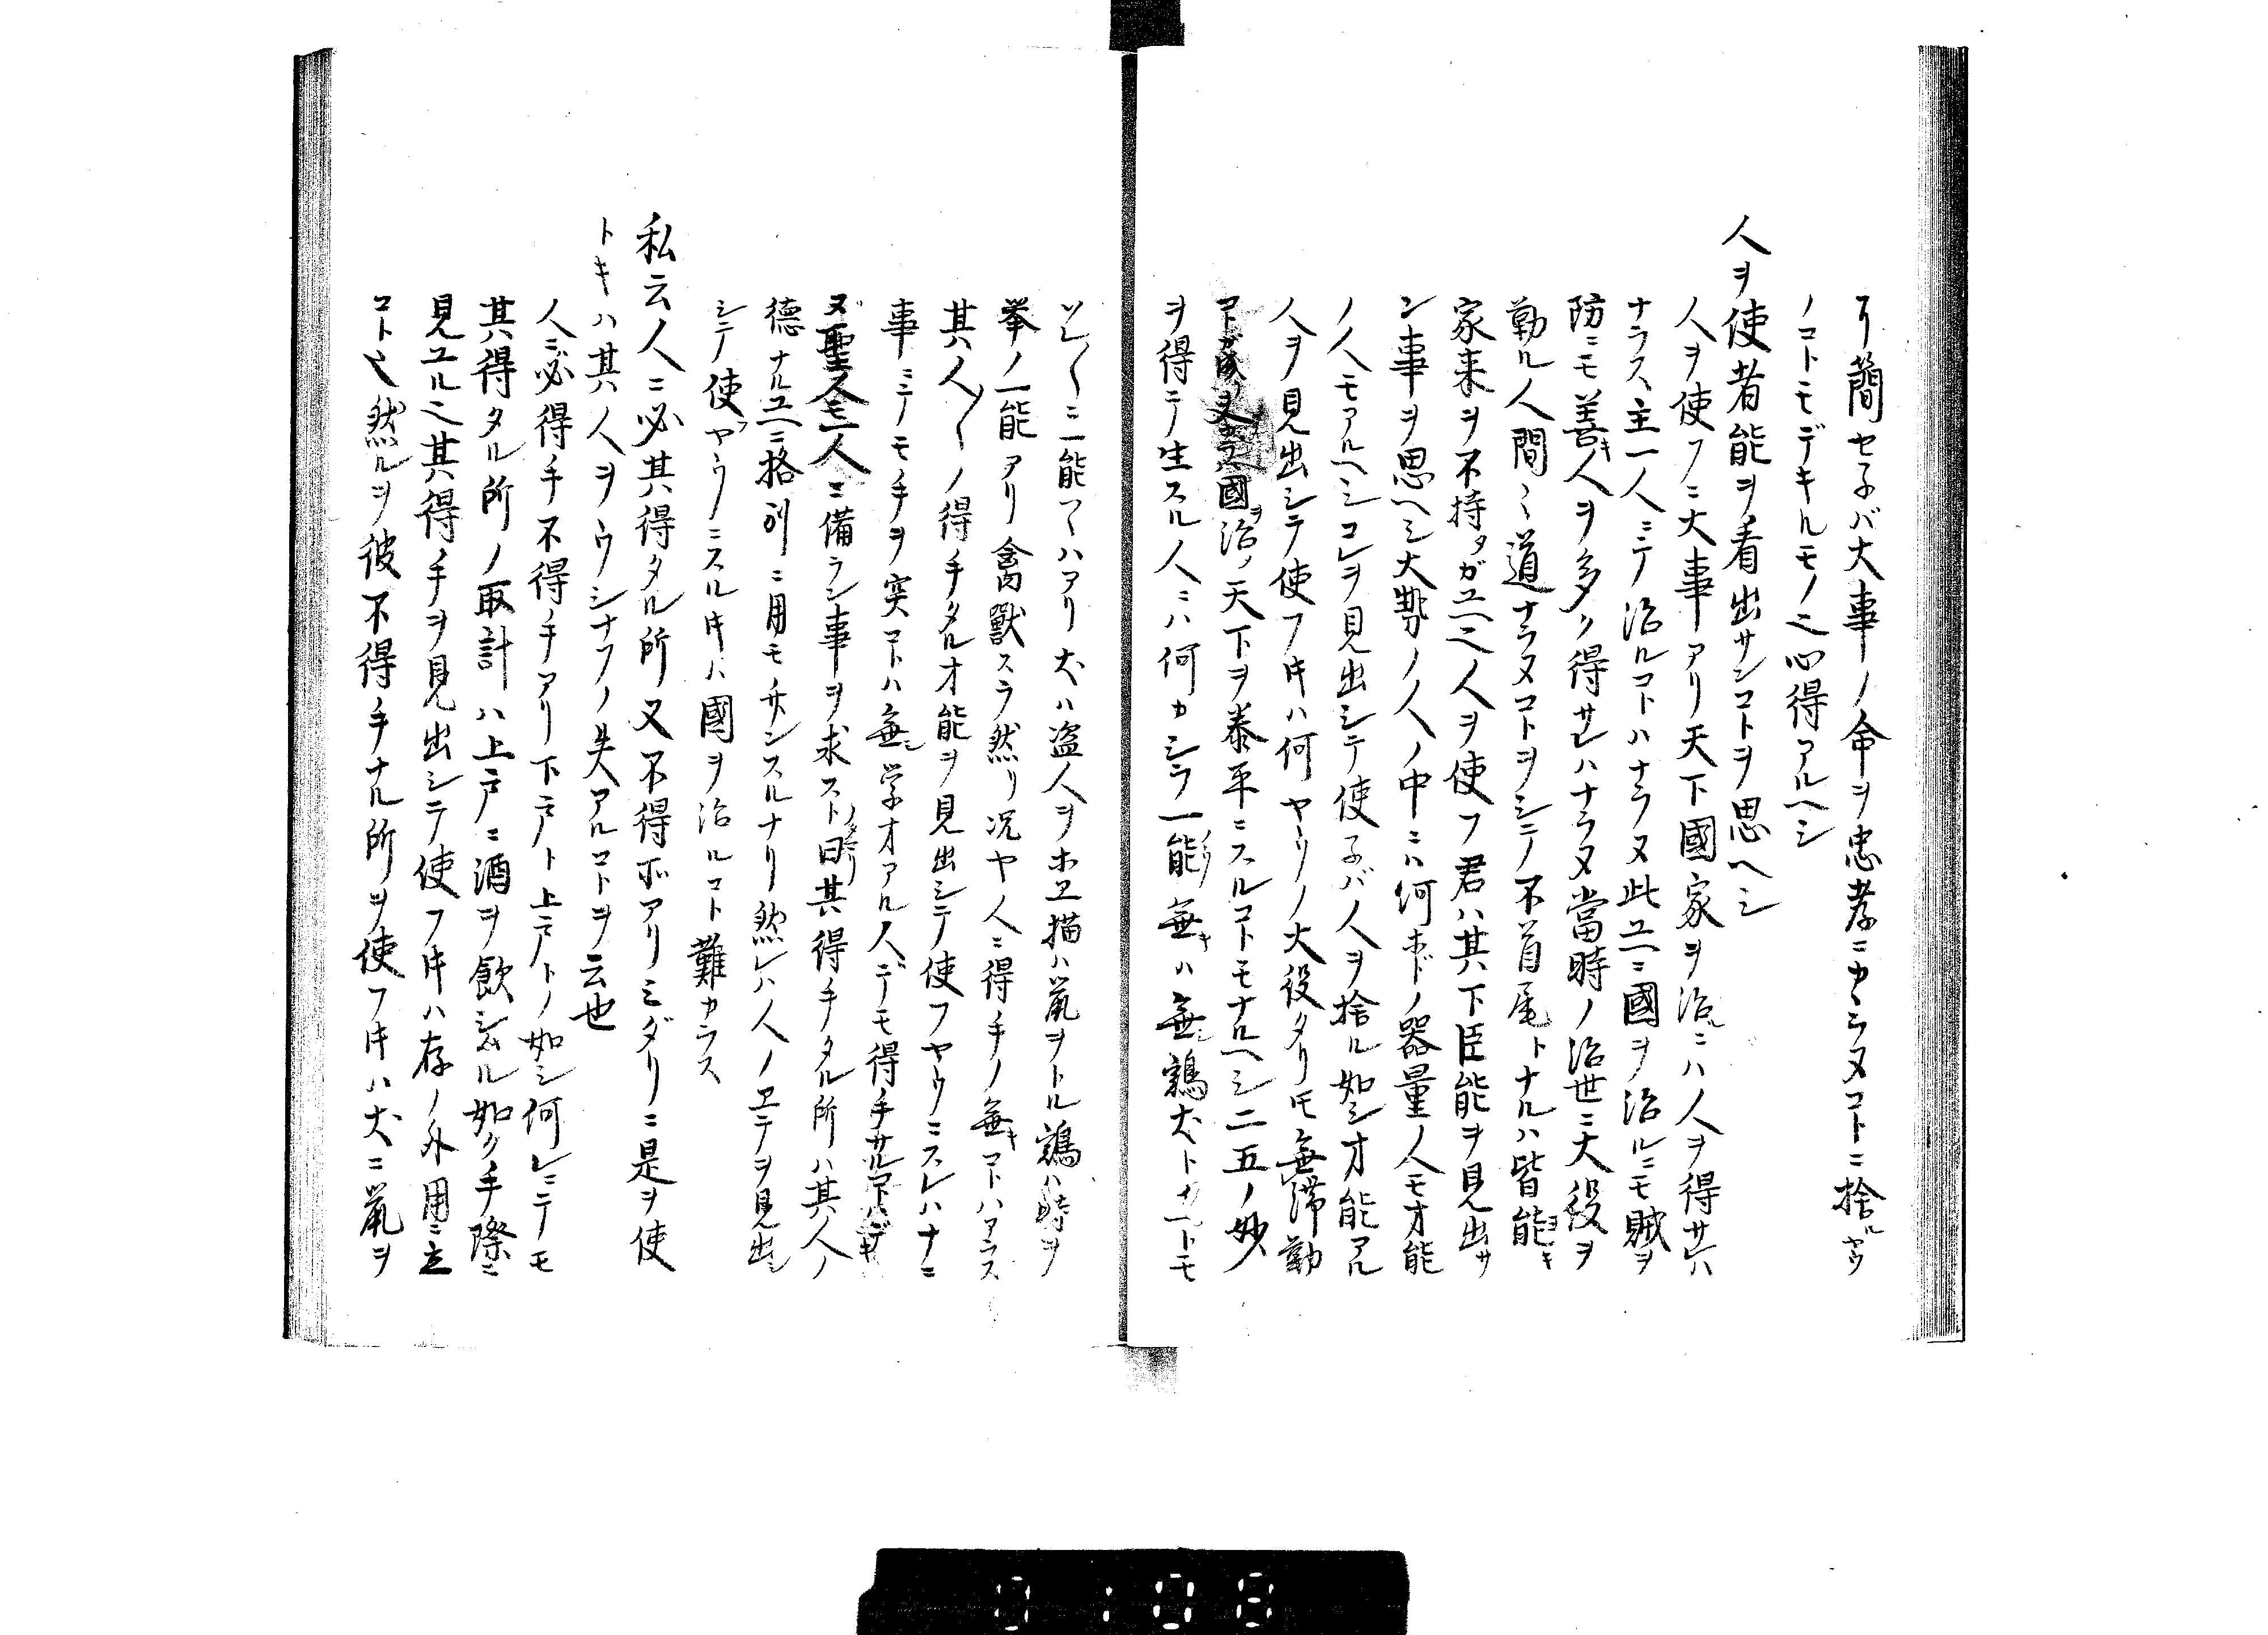 リ簡セ子バ大事ノ命ヲ忠孝ニカヽラヌコトニ捨ルヤウ
ノコトモデキルモノ也心得アルヘシ
人ヲ使者能ヲ看出サンコトヲ思ヘシ
人ヲ使フニ大事アリ天下國家ヲ治ルニハ人ヲ得サレハ
ナラス主一人ニテ治ルコトハナラヌ此ユヘニ國ヲ治ルニモ賊ヲ
防ニモ善キ人ヲ多ク得サレハナラヌ當時ノ治世ニ大役ヲ
勤ル人間々道ナラヌコトヲシテ不首尾トナルハ皆能キ
家来ヲ不持タガユヘ也人ヲ使フ君ハ其下臣能ヲ見出サ
ン事ヲ思ヘシ大勢ノ人ノ中ニハ何ホドノ器量人モオ能
ノ人モアルヘシコレヲ見出シテ使子バ人ヲ捨ル如シオ能アル
人ヲ見出シテ使フ片ハ何ヤウノ大役タリ𪜈無滞勤
コトガ成リ又國ヲ治メ天下ヲ泰平ニスルコトモナルヘシ二五ノ妙
ヲ得テ生スル人ニハ何カシラ一能無キハ無シ鶏犬トイヘトモ
ソレ〱ニ一能ツヽハアリ犬ハ盗人ヲホエ猫ハ鼠ヲトル鶏ハ時ヲ
挙ノ一能アリ禽獸スラ然リ况ヤ人ニ得手ノ無キコトハアラス
其人〱ノ得手タルオ能ヲ見出シテ使フヤウニスレハナニ
事ニテモ手ヲ突コトハ無シ学オアル人デモ得手サルコトハデキ
ヌ聖人モ一人ニ備ラン事ヲ求スト曰リ其得手タル所ハ其人ノ
徳ナルユヘニ格別ニ用モサンスルナリ然レハ人ノエテヲ見出シ
シテ使フヤウニスル片ハ國ヲ治ルコト難カラス
私云人ニ必其得タル所又不得所アリミダリニ是ヲ使
トキハ其人ヲウシナフノ失アルコトヲ云也
人ニ必得手不得手アリ下戸ト上戸トノ如シ何レニテモ
其得タル所ノ取計ハ上戸ニ酒ヲ飲シムル如ク手際ニ
見ユル也其得手ヲ見出シテ使フ片ハ存ノ外用ニ立
コト也然ルヲ彼不得手ナル所ヲ使フ片ハ犬ニ鼠ヲ